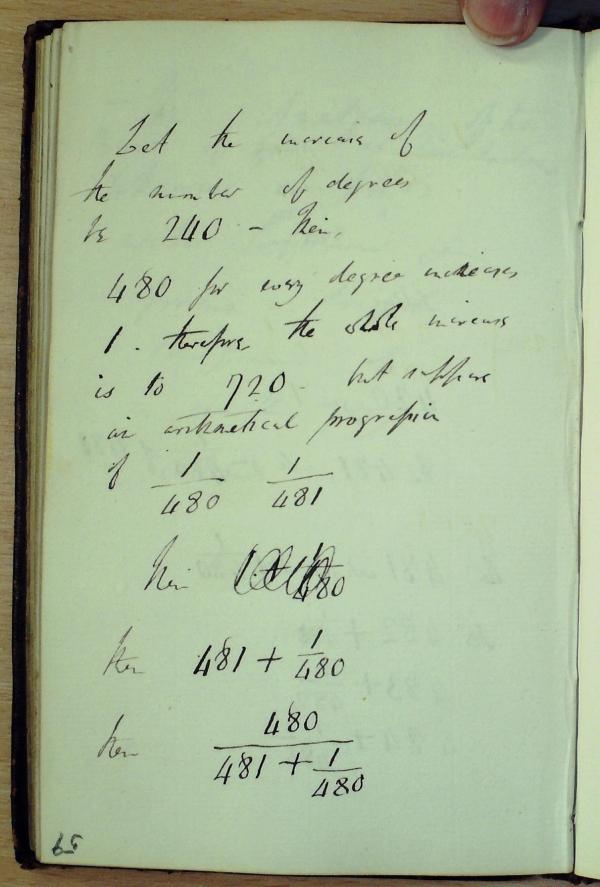 Let the increase of
the number of degrees
be 240 - then,
480 for every degree increases
1. therefore the whole increase
is to 720. but suppose
an arithmetical progression
of 1/480 1/481
then
then 481 + 1/480
then 480/(481 + 1/480)
59